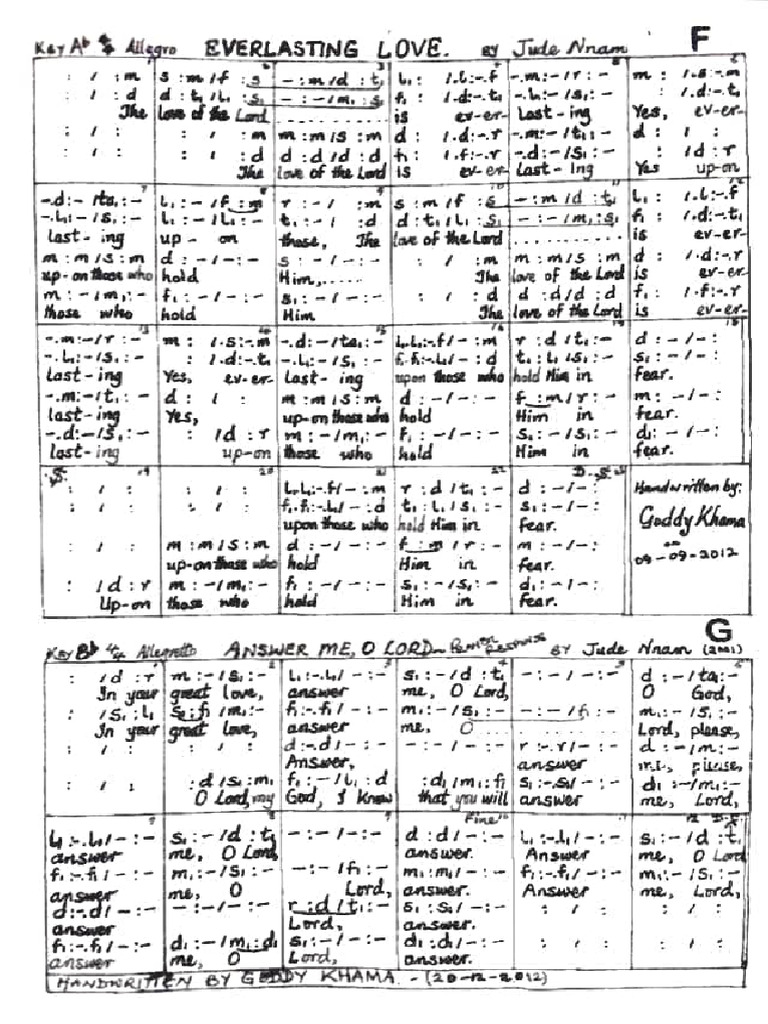 F
Key Ab Allegro EVERLASTING LOVE. BY Jude Nnam
: / : m | s : m / f : s | - : m / d : t₁ | l₁ : / . l₁ : - . f | - . m : - / r : - | m : / . s : - . m
: / : d | d : t₁ / l₁ : s₁ | - : - / m₁ : s₁ | f₁ : / . d : - . t₁ | - . l₁ : - / s₁ : - | : / . d : - . t₁
The | love of the Lord | is ev-er- | last-ing | Yes, ev-er-
: / : | : / : m | m : m / s : m | d : / . d : - . r | - . m : - / t₁ : - | d : / :
: / : | : / : d | d : d / d : d | f₁ : / . f : - . r | - . d : - / s₁ : - | : / d : r
The | love of the Lord | is ev-er- | last-ing | Yes up-on
- . d : - / ta₁ : - | l₁ : - / f : m | r : - / : m | s : m / f : s | - : m / d : t₁ | l₁ : / . l₁ : - . f
- . l₁ : - / s₁ : - | l₁ : - / l₁ : - | t₁ : - / : d | d : t₁ / l₁ : s₁ | - : - / m₁ : s₁ | f₁ : / . d : - . t₁
last-ing | up-on | those, The | love of the Lord | is ev-er-
m : m / s : m | d : - / - : - | s : - / - : - | : / : m | m : m / s : m | d : / . d : - . r
up-on those who | hold | Him, | The | love of the Lord | is ev-er-
m : - / m₁ : - | f₁ : - / - : - | s₁ : - / - : - | : / : d | d : d / d : d | f₁ : / . f : - . r
those who | hold | Him | The | love of the Lord | is ev-er-
- . m : - / r : - | m : / . s : - . m | - . d : - / ta₁ : - | l₁ . l₁ : - . f / - : m | r : d / t₁ : - | d : - / - :
- . l₁ : - / s₁ : - | : / . d : - . t₁ | - . l₁ : - / s₁ : - | f₁ . f₁ : - . l₁ / - : d | t₁ : l₁ / s₁ : - | s₁ : - / - :
last-ing | Yes, ev-er- | last-ing | upon those who | hold Him in | fear.
- . m : - / t₁ : - | d : / : | m : m / s : m | d : - / - : - | f : m / r : - | m : - / - :
last-ing | Yes, | up-on those who | hold | Him in | fear.
- . d : - / s₁ : - | : / d : r | m : - / m₁ : - | f₁ : - / - : - | s₁ : - / s₁ : - | d₁ : - / - :
last-ing | up-on | those who | hold | Him in | fear.
: / : | : / : | l₁ . l₁ : - . f / - : m | r : d / t₁ : - | d : - / - : | Handwritten by:
: / : | : / : | f₁ . f₁ : - . l₁ / - : d | t₁ : l₁ / s₁ : - | s₁ : - / - : | Goddy Khama
upon those who | hold Him in | fear.
: / : | m : m / s : m | d : - / - : - | f : m / r : - | m : - / - : | 09-09-2012
up-on those who | hold | Him in | fear.
: / d : r | m : - / m₁ : - | f₁ : - / - : - | s₁ : - / s₁ : - | d₁ : - / - :
Up-on | those who | hold | Him in | fear.
G
Key Bb 4/4 Allegretto ANSWER ME, O LORD BY Jude Nnam (2001)
: / d : r | m : - / s₁ : - | l₁ : - . l₁ / - : - | s₁ : - / d : t₁ | - : - / - : - | d : - / ta₁ : -
In your | great love, | answer | me, O Lord, | O God,
: / s₁ : l₁ | s₁ : f₁ / m₁ : - | f₁ : - . f₁ / - : - | m₁ : - / s₁ : - | - : - / f₁ : - | m₁ : - / s₁ : -
In your | great love, | answer | me, O | Lord, please,
: / : | : / : | d : - . d / - : - | - : - / - : - | r : - . r / - : - | d : - / m : -
Answer, | answer | me, please,
: / : | : d / s₁ : m₁ | f₁ : - / l₁ : d | : d₁ / m₁ : f₁ | s₁ : - . s₁ / - : - | d₁ : - / m₁ : -
O Lord, my | God, I know | that you will | answer | me, Lord,
l₁ : - . l₁ / - : - | s₁ : - / d : t₁ | - : - / - : - | d : d / - : - | l₁ : - . l₁ / - : - | s₁ : - / d : t₁
Fine
answer | me, O Lord | answer. | Answer | me, O Lord
f₁ : - . f₁ / - : - | m₁ : - / s₁ : - | - : - / f₁ : - | m₁ : m₁ / - : - | f₁ : - . f₁ / - : - | m₁ : - / s₁ : -
answer | me, O | Lord, | answer. | Answer | me, Lord,
d : - . d / - : - | - : - / - : - | r : d / t₁ : - | s₁ : s₁ / - : - | : / : | : / :
answer | Lord, | answer.
f₁ : - . f₁ / - : - | d₁ : - / m₁ : d₁ | s₁ : - / - : - | d₁ : d₁ / - : - | : / : | : / :
answer | me, O | Lord, | answer.
HANDWRITTEN BY GODDY KHAMA. - (20-12-2012)